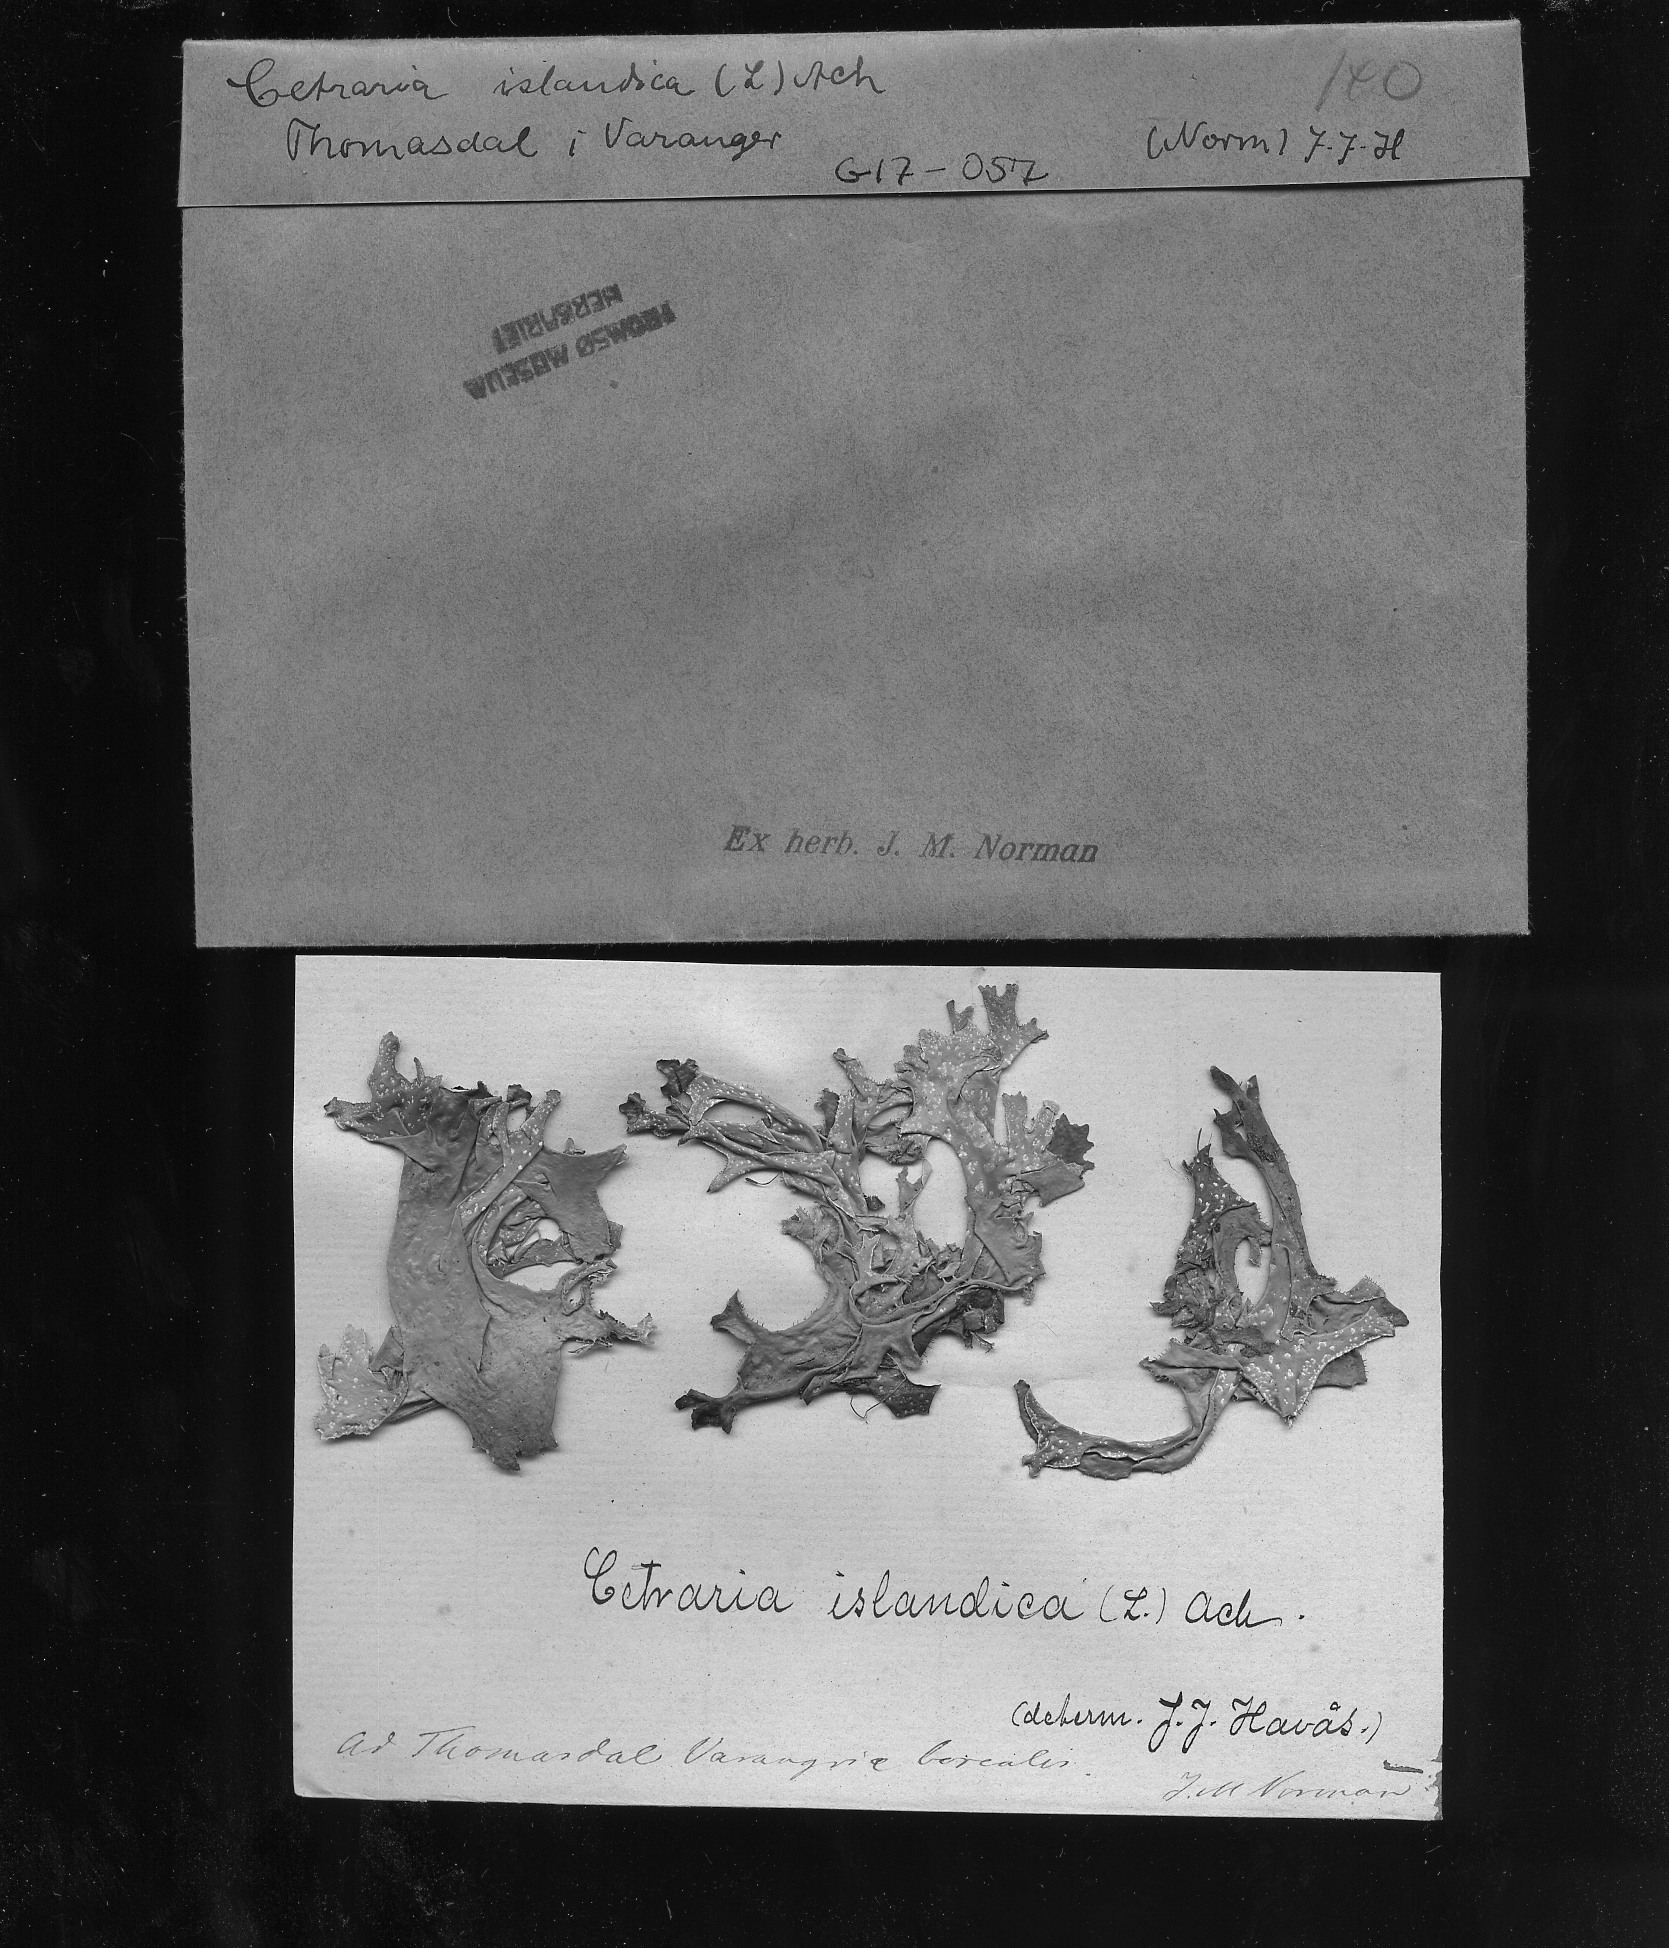 Cetraria islandica (L) Ach
140
Thomasdal i Varanger
(Norm) J. J. H
G17-057
TROMSØ MUSEUM
HERBARIET
Ex herb. J. M. Norman
Cetraria islandica (L.) Ach.
(determ. J. J. Havås.)
Ad Thomasdal Varangriæ borealis.
J. M Norman